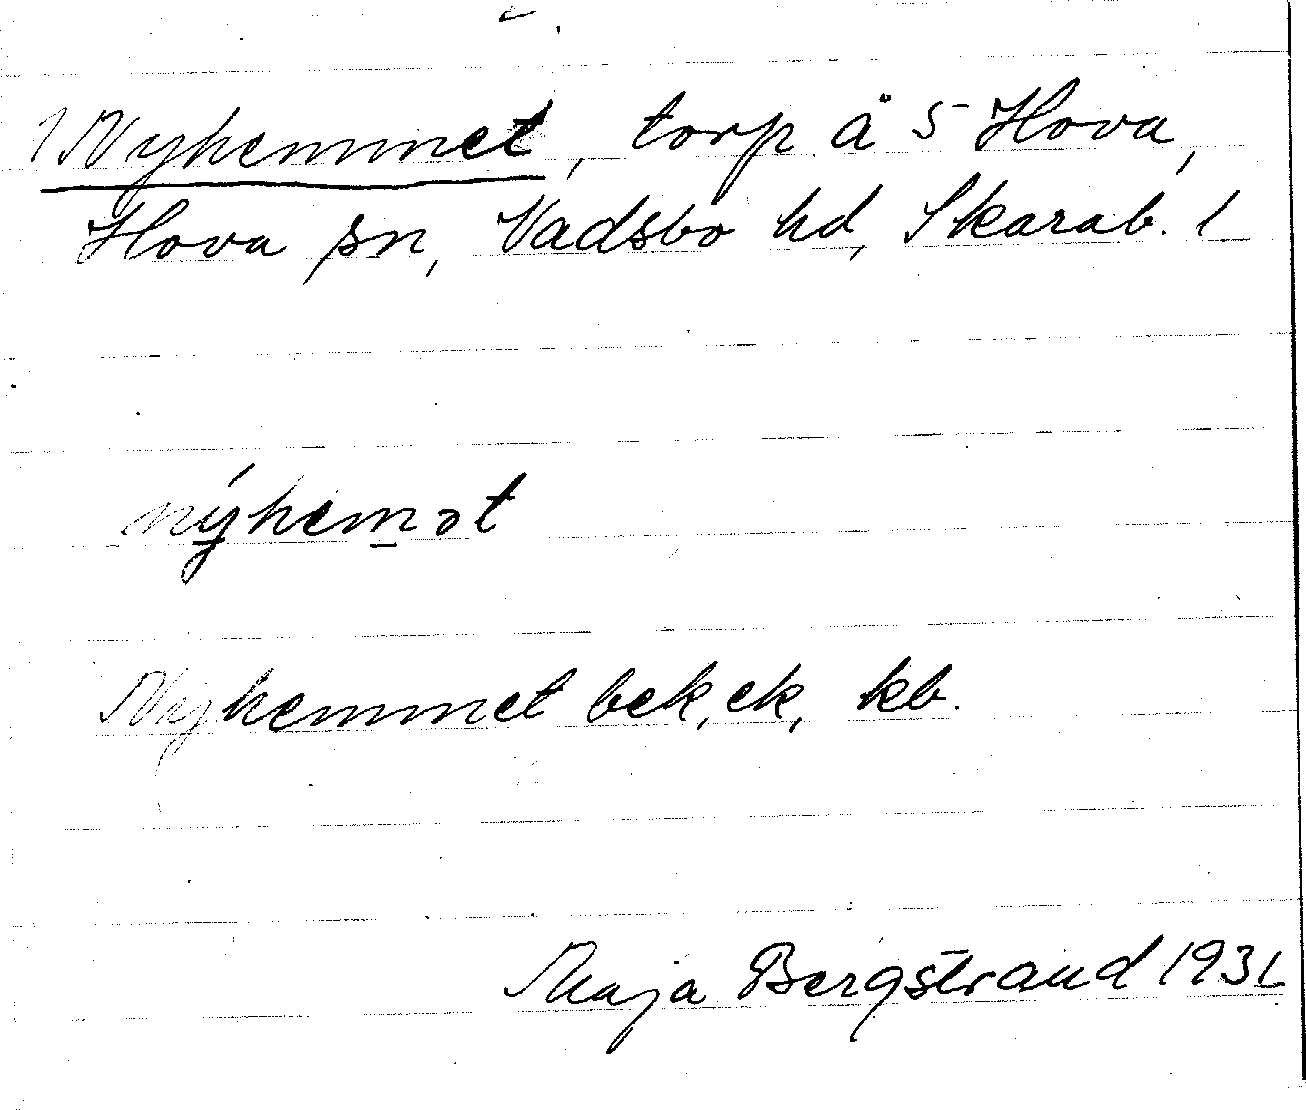 1 Nyhemmet, torp å 5 Hova,
Hova sn, Vadsbo hd, Skarab. l
nýhem̲ət
Nyhemmet bek, ek, kb.
Maja Bergstrand 1931